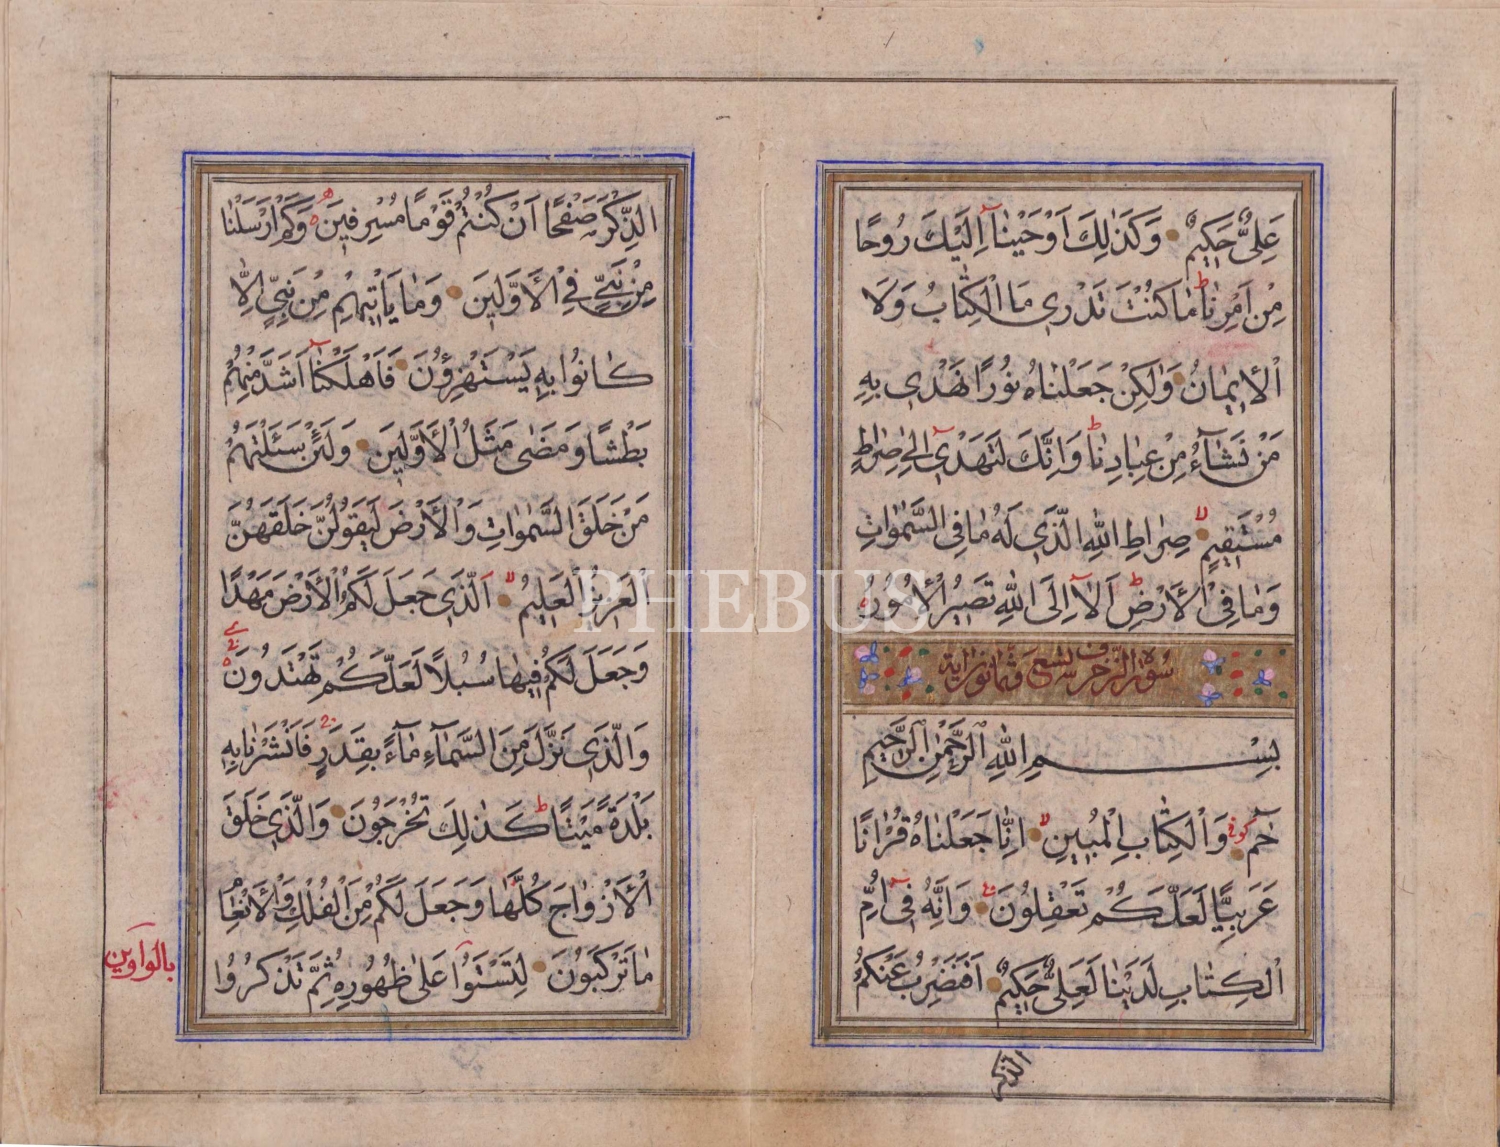 عَلِيٌّ حَكِيمٌ وَكَذٰلِكَ اَوْحَيْنٰٓا اِلَيْكَ رُوحًا
مِنْ اَمْرِنٰا مٰا كُنْتَ تَدْرِي مَا الْكِتٰابُ وَلَا
الْاِيمٰانُ وَلٰكِنْ جَعَلْنٰاهُ نُورًا نَهْدِي بِهِ
مَنْ نَشٰٓاءُ مِنْ عِبٰادِنٰا وَاِنَّكَ لَتَهْدِيٓ اِلىٰ صِرٰاطٍ
مُسْتَقِيمٍ صِرٰاطِ اللّٰهِ الَّذِي لَهُ مٰا فِي السَّمٰوٰاتِ
وَمٰا فِي الْاَرْضِ اَلٰٓا اِلَى اللّٰهِ تَصِيرُ الْاُمُورُ
سُورَة الزخرف تسع وثمانون اية
بِسْمِ اللّٰهِ الرَّحْمٰنِ الرَّحِيمِ
حٰمٓ كوفي وَالْكِتٰابِ الْمُبِينِ اِنّٰا جَعَلْنٰاهُ قُرْاٰنًا
عَرَبِيًّا لَعَلَّكُمْ تَعْقِلُونَ وَاِنَّهُ فِيٓ اُمِّ
الْكِتٰابِ لَدَيْنٰا لَعَلِيٌّ حَكِيمٌ اَفَنَضْرِبُ عَنْكُمُ
الذكر
الذِّكْرَ صَفْحًا اَنْ كُنْتُمْ قَوْمًا مُسْرِفِينَ وَكَمْ اَرْسَلْنٰا
مِنْ نَبِيٍّ فِي الْاَوَّلِينَ وَمٰا يَأْتِيهِمْ مِنْ نَبِيٍّ اِلّٰا
كٰانُوا بِهِ يَسْتَهْزِؤُنَ فَاَهْلَكْنٰٓا اَشَدَّ مِنْهُمْ
بَطْشًا وَمَضىٰ مَثَلُ الْاَوَّلِينَ وَلَئِنْ سَئَلْتَهُمْ
مَنْ خَلَقَ السَّمٰوٰاتِ وَالْاَرْضَ لَيَقُولُنَّ خَلَقَهُنَّ
الْعَزِيزُ الْعَلِيمُ اَلَّذِي جَعَلَ لَكُمُ الْاَرْضَ مَهْدًا
وَجَعَلَ لَكُمْ فِيهٰا سُبُلًا لَعَلَّكُمْ تَهْتَدُونَ
وَالَّذِي نَزَّلَ مِنَ السَّمٰٓاءِ مٰٓاءً بِقَدَرٍ فَاَنْشَرْنٰا بِهِ
بَلْدَةً مَيْتًا كَذٰلِكَ تُخْرَجُونَ وَالَّذِي خَلَقَ
الْاَزْوٰاجَ كُلَّهٰا وَجَعَلَ لَكُمْ مِنَ الْفُلْكِ وَالْاَنْعٰامِ
مٰا تَرْكَبُونَ لِتَسْتَوٗا عَلىٰ ظُهُورِهِ ثُمَّ تَذْكُرُوا
بالواوين
PHEBUS